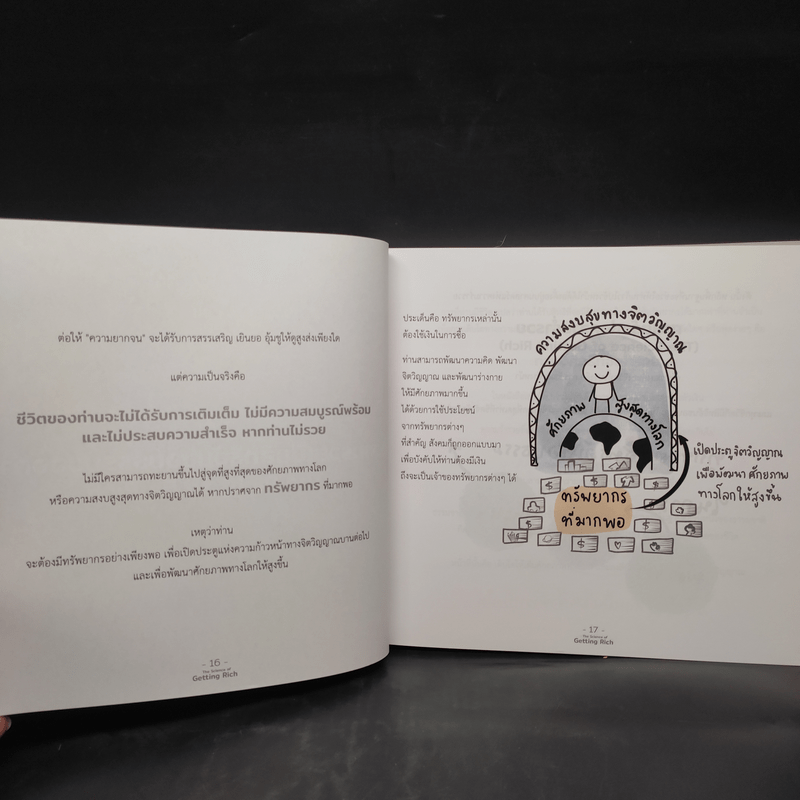 ต่อให้ "ความยากจน" จะได้รับการสรรเสริญ เยินยอ อุ้มชูให้ดูสูงส่งเพียงใด
แต่ความเป็นจริงคือ
ชีวิตของท่านจะไม่ได้รับการเติมเต็ม ไม่มีความสมบูรณ์พร้อม
และไม่ประสบความสำเร็จ หากท่านไม่รวย
ไม่มีใครสามารถทะยานขึ้นไปสู่จุดที่สูงที่สุดของศักยภาพทางโลก
หรือความสงบสูงสุดทางจิตวิญญาณได้ หากปราศจาก ทรัพยากร ที่มากพอ
เหตุว่าท่าน
จะต้องมีทรัพยากรอย่างเพียงพอ เพื่อเปิดประตูแห่งความก้าวหน้าทางจิตวิญญาณบานต่อไป
และเพื่อพัฒนาศักยภาพทางโลกให้สูงขึ้น
- 16 -
The Science of
Getting Rich
ประเด็นคือ ทรัพยากรเหล่านั้น
ต้องใช้เงินในการซื้อ
ท่านสามารถพัฒนาความคิด พัฒนา
จิตวิญญาณ และพัฒนาร่างกาย
ให้มีศักยภาพมากขึ้น
ได้ด้วยการใช้ประโยชน์
จากทรัพยากรต่างๆ
ที่สำคัญ สังคมก็ถูกออกแบบมา
เพื่อบังคับให้ท่านต้องมีเงิน
ถึงจะเป็นเจ้าของทรัพยากรต่างๆ ได้
ความสงบสุขทางจิตวิญญาณ
ศักยภาพ สูงสุดทางโลก
ทรัพยากร
ที่มากพอ
เปิดประตูจิตวิญญาณ
เพื่อพัฒนา ศักยภาพ
ทางโลกให้สูงขึ้น
- 17 -
The Science of
Getting Rich